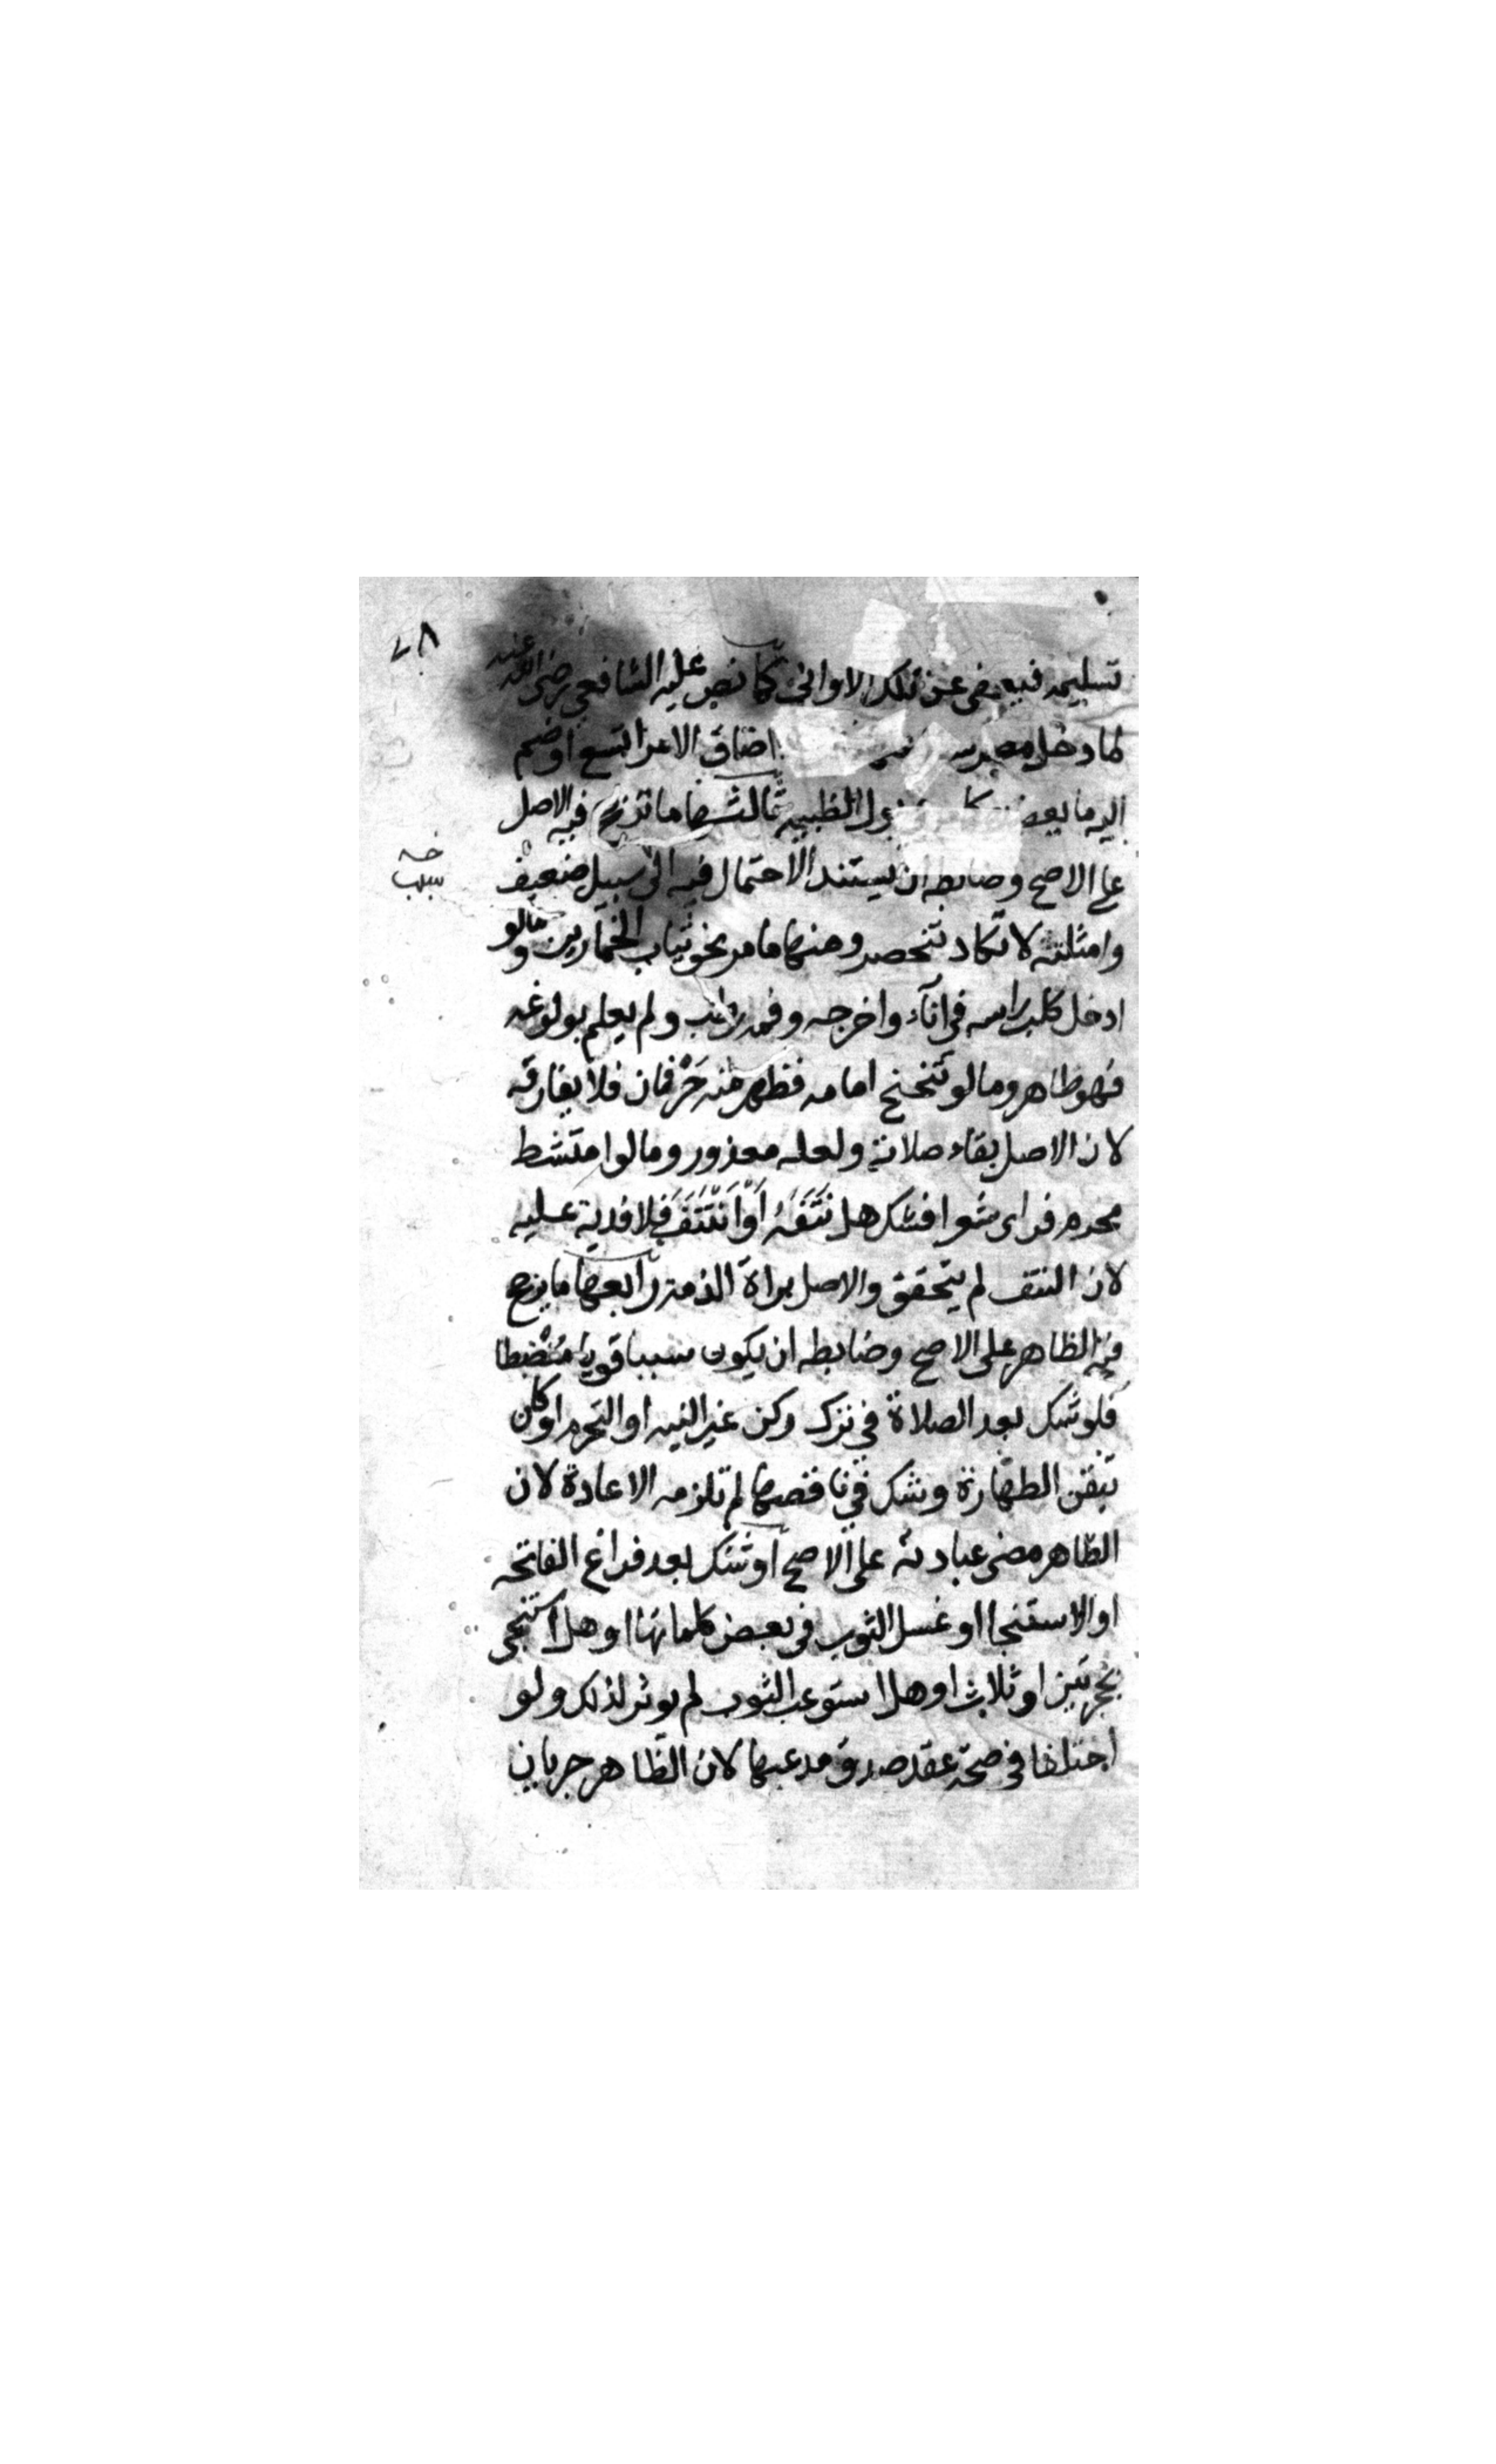 ٧٨
تسليمه فيعفى عن تلك الاواني كما نص عليه الشافعي رضي الله عنه
لما دخل مصر اضاق الامر اتسع او ضم
اليه ما بول الظبية ثالثها ما ترجح فيه الاصل
على الاصح وضابطه ان يستند الاحتمال فيه الى سبيل ضعيف
خـ سبب
وامثلته لا تكاد تنحصر ومنها ما مر بنحو ثياب الخمارين وما لو
ادخل كلب راسه في اناء واخرجه وفمه رطب ولم يعلم بولوغه
فهو طاهر وما لو تنحنح امامه فظهر منه حرفان فلا يفارقه
لان الاصل بقاء صلاته ولعله معذور وما لو امتشط
محرم فراى شعرا فشك هل نَتَفَهُ أَوْ انْتَتَفَ فلا فدية عليه
لان النتف لم يتحقق والاصل براة الذمة رابعها ما يرجح
فيه الظاهر على الاصح وضابطه ان يكون سببا قويا منضبطا
فلو شك بعد الصلاة في ترك ركن غير النيه او التحرم او كان
تيقن الطهارة وشك في ناقضها لم تلزمه الاعادة لان
الظاهر مضي عبادته على الاصح او شك بعد فراغ الفاتحه
او الاستنجا او غسل الثوب في بعض كلماتها او هل استنجى
بحجرتين او ثلاث او هل استوعب الثوب لم يوثر لذلك ولو
اختلفا في صحة عقد صدق مدعيها لان الظاهر جريان